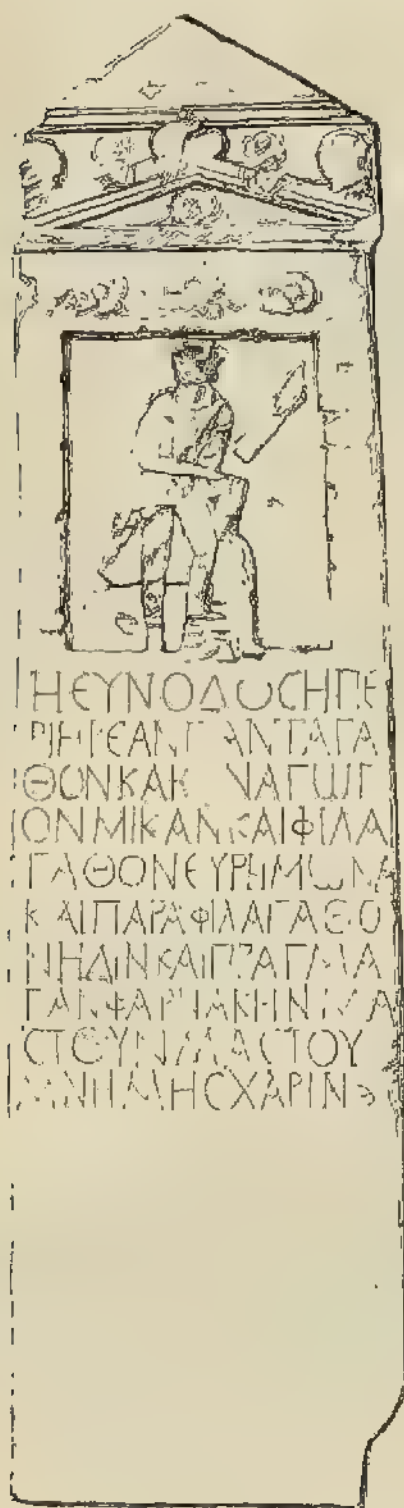 ΗΕΥΝΟΔΩCΗΠΕ
ΡΙΗΡΕΑΝΠΑΝΤΑΓΑ
ΘΟΝΚΑΚ ΝΑΓΩΓ
ΟΝΜΙΚΑΝΚΑΙΦΙΛΑ
ΓΑΘΟΝΕΥΡΗΜΩΝΑ
ΚΑΙΠΑΡΑΦΙΛΑΓΑΘΟ
ΝΗΔΙΝΚΑΙΠΡΑΓΜΑ
ΓΑΝΦΑΡΝΑΚΗΝΜΑ
CΤΟΥΝΜΑCΤΟΥ
ΜΝΗΜΗCΧΑΡΙΝ